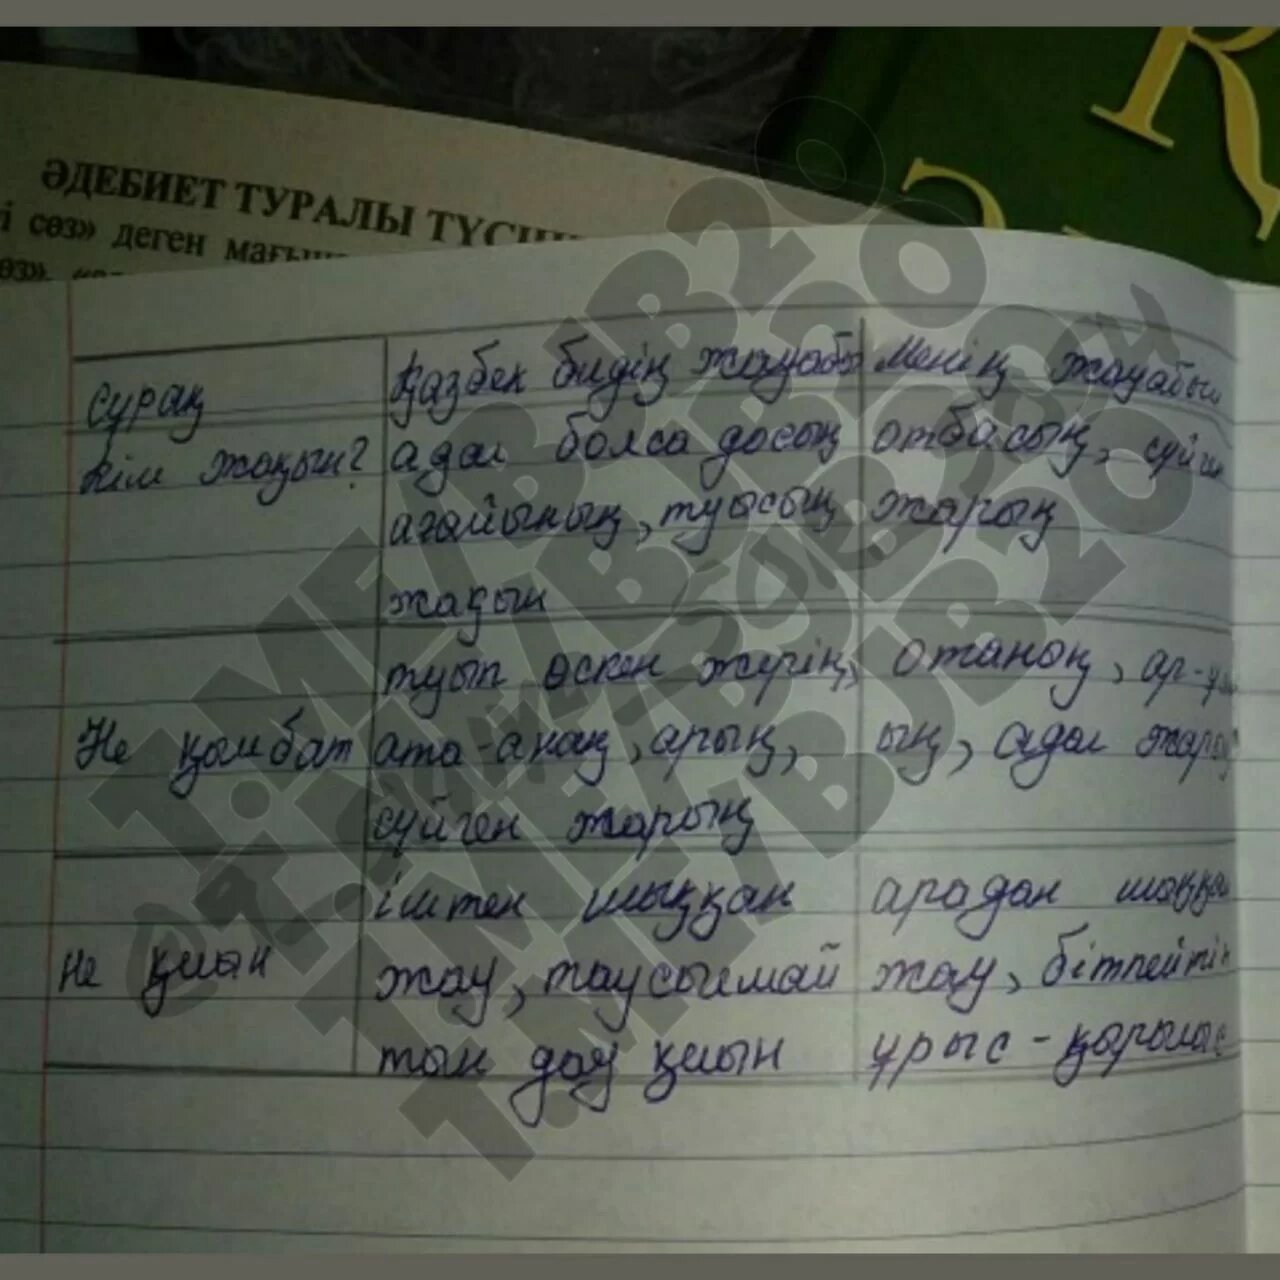 ӘДЕБИЕТ ТУРАЛЫ
і сөз» деген
сұрақ
Қазбек бидің жауабы
Менің жауабым
Кім жақын?
адал болса досың
ағайының, туысың
жақын
отбасың, сүйген
жарың
Не қымбат
туып өскен жерің,
ата-анаң, арың,
сүйген жарың
отаның,
ың, адал
не қиын
іштен шыққан
жау, таусылмай
тын дау қиын
арадан шыққан
жау, бітпейтін
ұрыс-қарылас